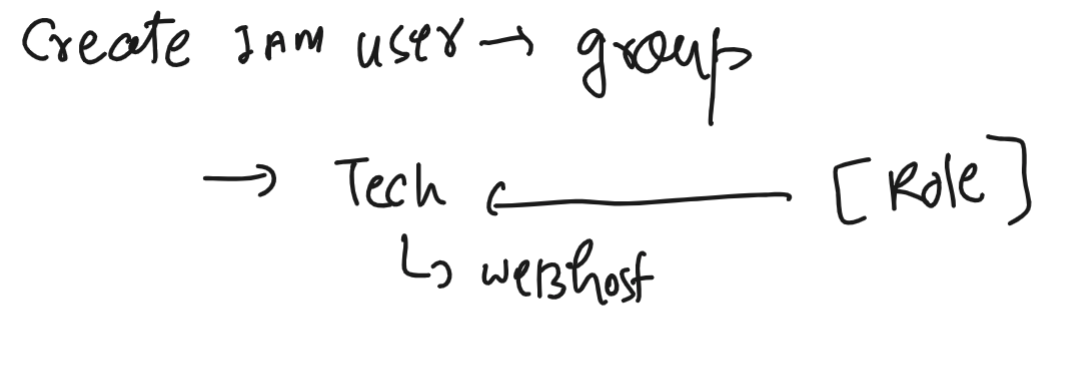 Create IAM user → group
→ Tech ← [Role]
↳ webhost